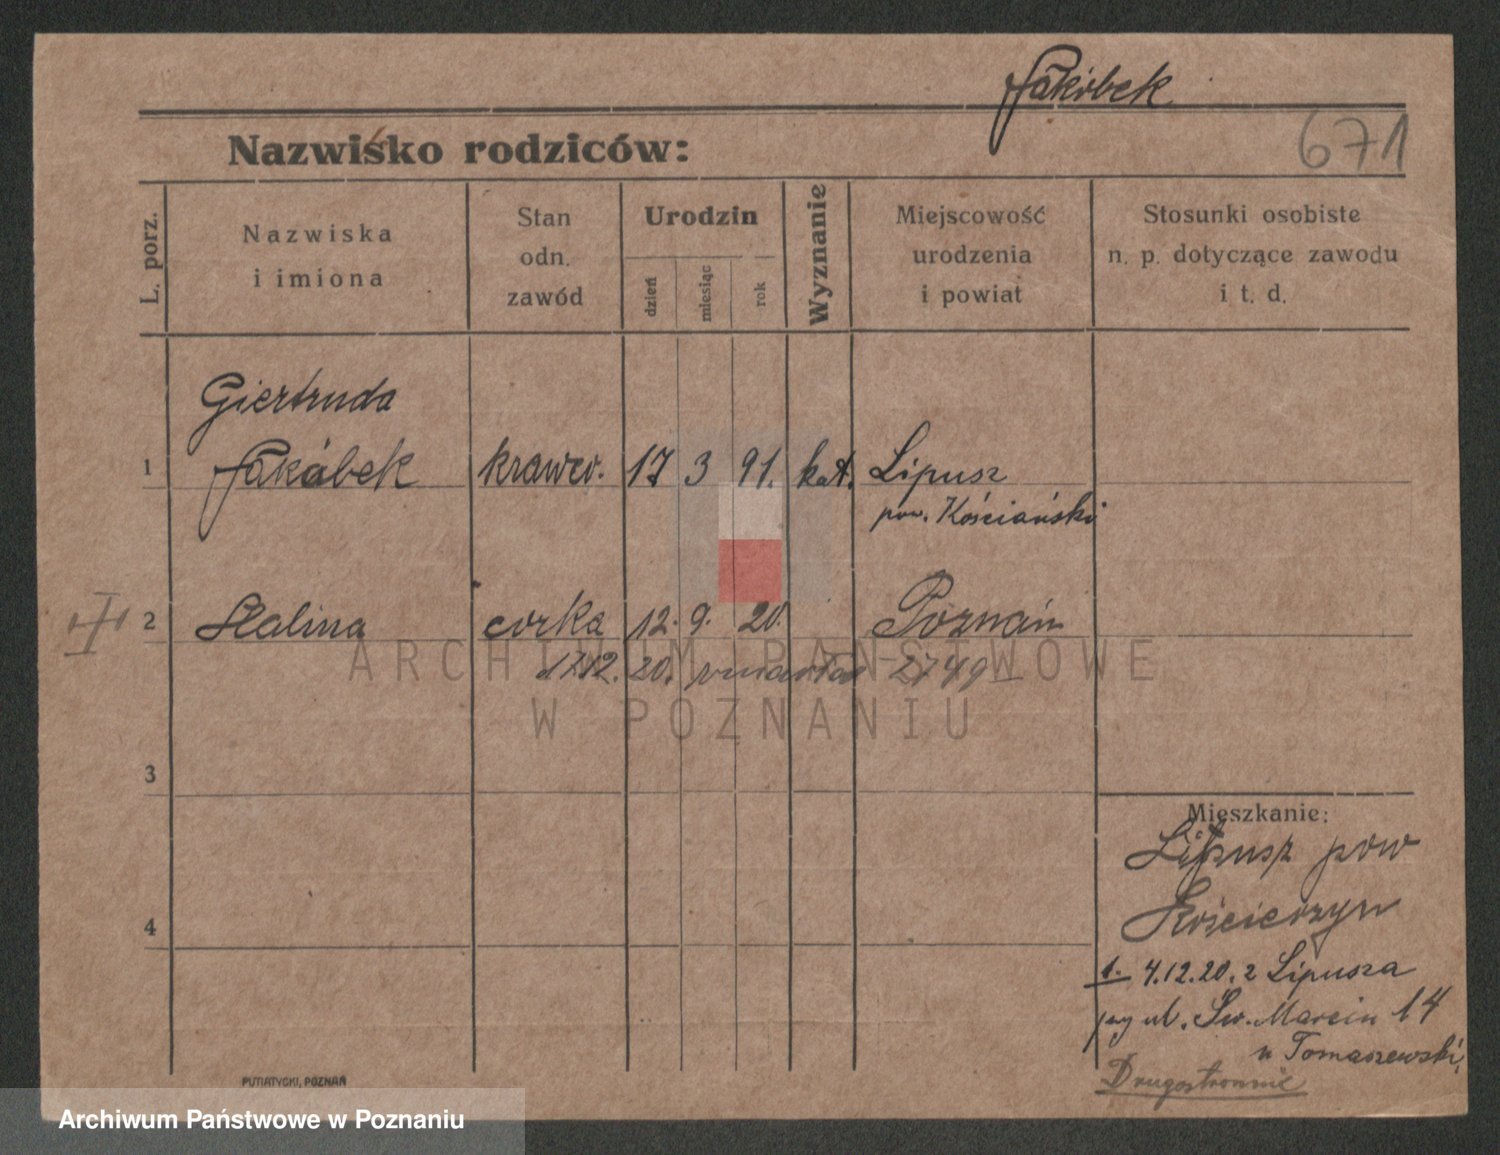 Jakóbek
671
Nazwisko rodziców:
L. porz.
Nazwiska
i imiona
Stan
odn.
zawód
Urodzin
dzień
miesiąc
rok
Wyznanie
Miejscowość
urodzenia
i powiat
Stosunki osobiste
n. p. dotyczące zawodu
i t. d.
Giertruda
1 Jakóbek krawcv. 17 3 91. kat. Lipusz
pow. Kościański
2 Halina córka 12. 9. 20. Poznań
17.12. 20. zmarła 2749
3
4
Mieszkanie:
Lipusz pow
Kościerzyn
1. 4.12.20. z Lipusza
przy ul. Św. Marcin 14
u Tomaszewski.
Drugostronnie
PUTIATYCKI, POZNAŃ
ARCHIWUM PAŃSTWOWE
W POZNANIU
Archiwum Państwowe w Poznaniu